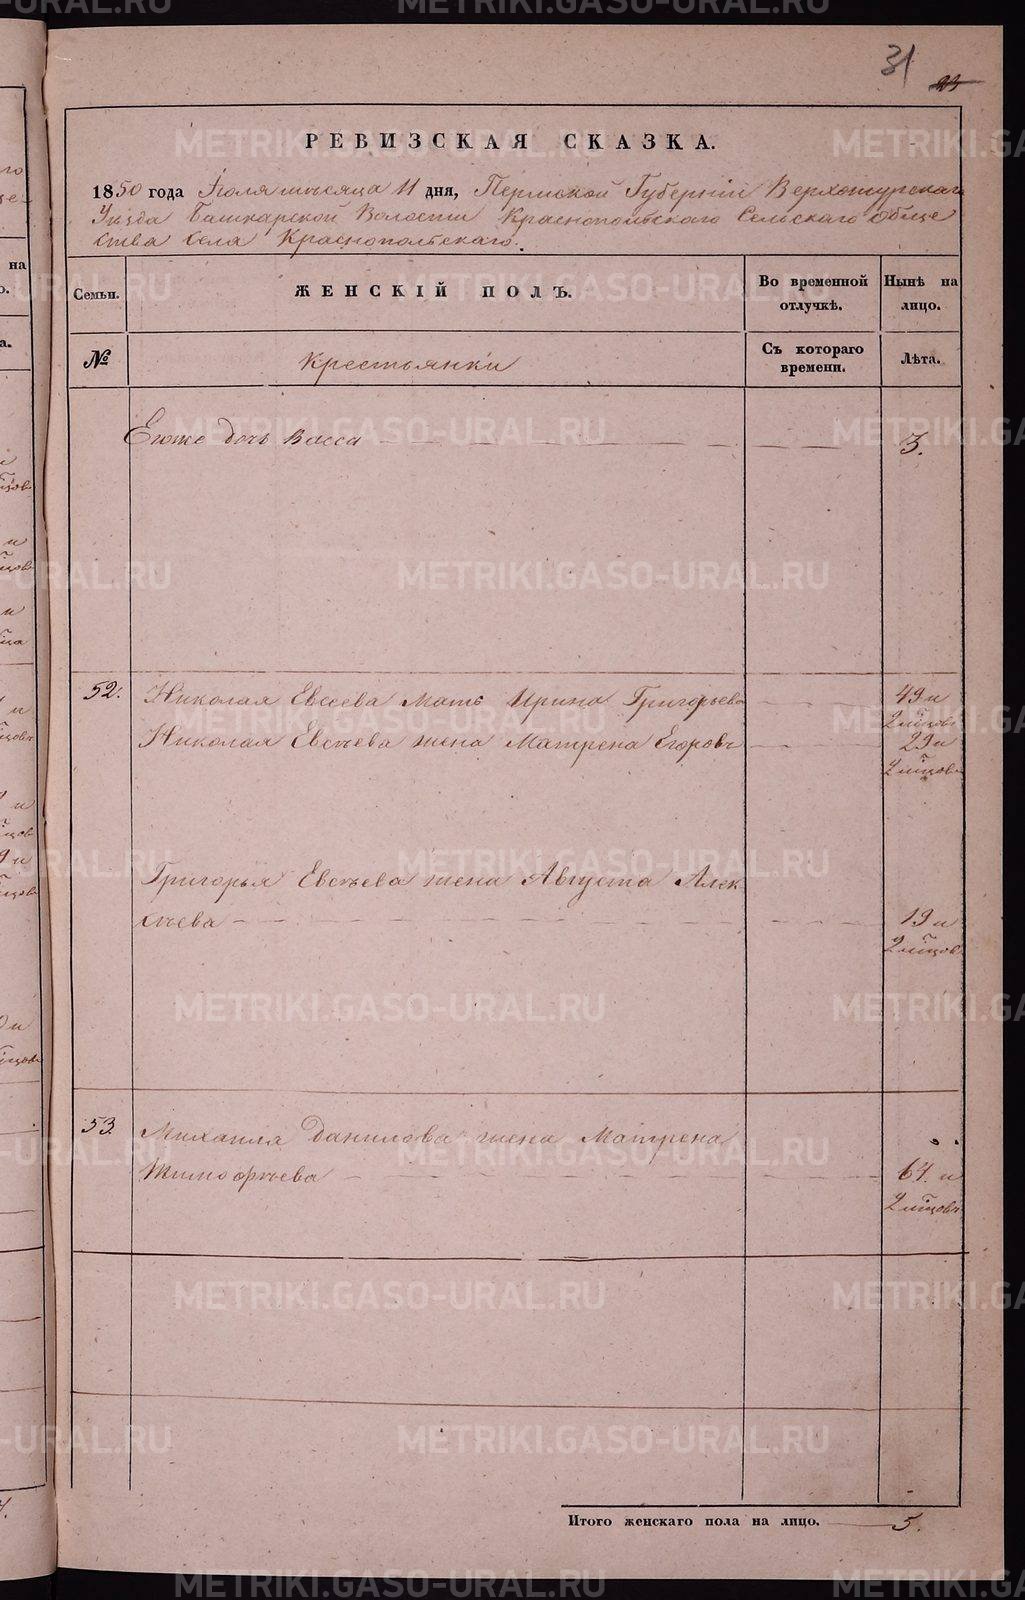 31
23
РЕВИЗСКАЯ СКАЗКА.
1850 года Іюля мѣсяца 11 дня, Пермской Губерніи Верхотурскаго
Уѣзда Башкарской Волости Краснопольскаго Сельскаго Обще
ства села Краснопольскаго.
Семьи.
ЖЕНСКІЙ ПОЛЪ.
Во временной отлучкѣ.
Нынѣ на лицо.
№
Крестьянки
Съ котораго времени.
Лѣта.
Егоже дочь Васса 3.
52. Николая Евсеева Мать Ирина Григорьева 49 и
2 мѣсцовъ
Николая Евсѣева жена Матрена Егорова 29 и
2 мѣсцовъ
Григорья Евсѣева жена Августа Алек
сѣева 19 и
2 мѣсцовъ
53. Михаила Данилова жена Матрена
Тимофѣева 64. и
2 мѣсцовъ
Итого женскаго пола на лицо. 5.
METRIKI.GASO-URAL.RU